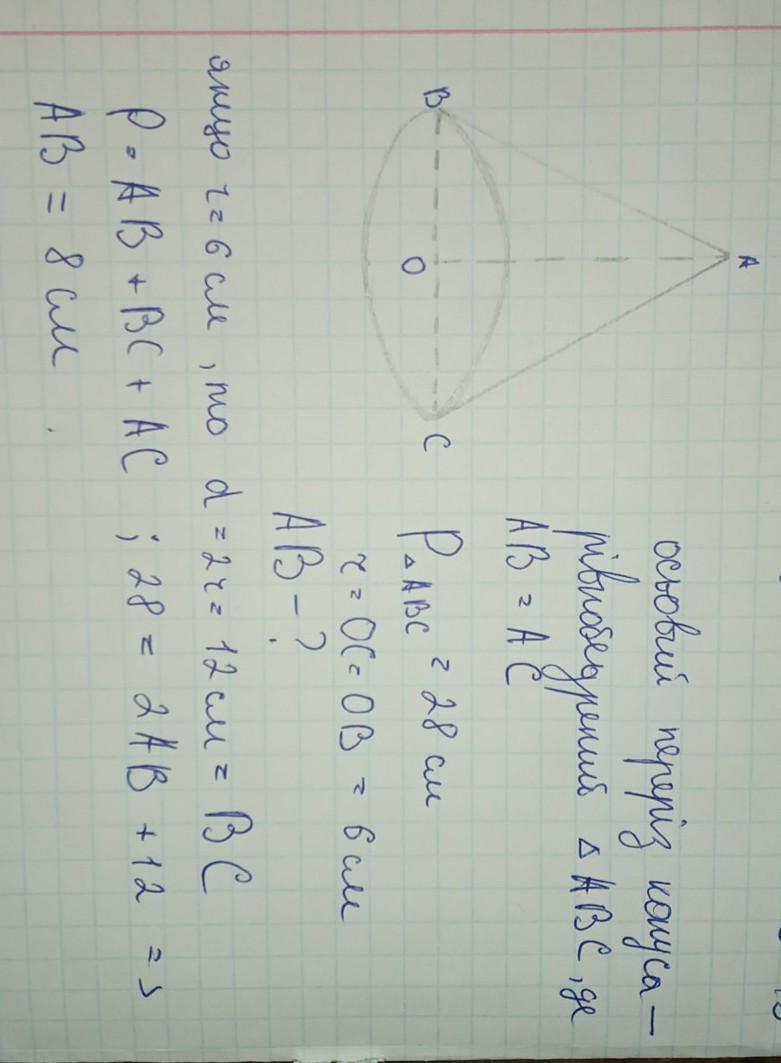 A
B
O
C
осьовий переріз конуса —
рівнобедрений △ ABC, де
AB = AC
P△ABC = 28 см
r = OC = OB = 6 см
AB - ?
якщо r = 6 см, то d = 2r = 12 см = BC
P = AB + BC + AC ; 28 = 2AB + 12 =>
AB = 8 см